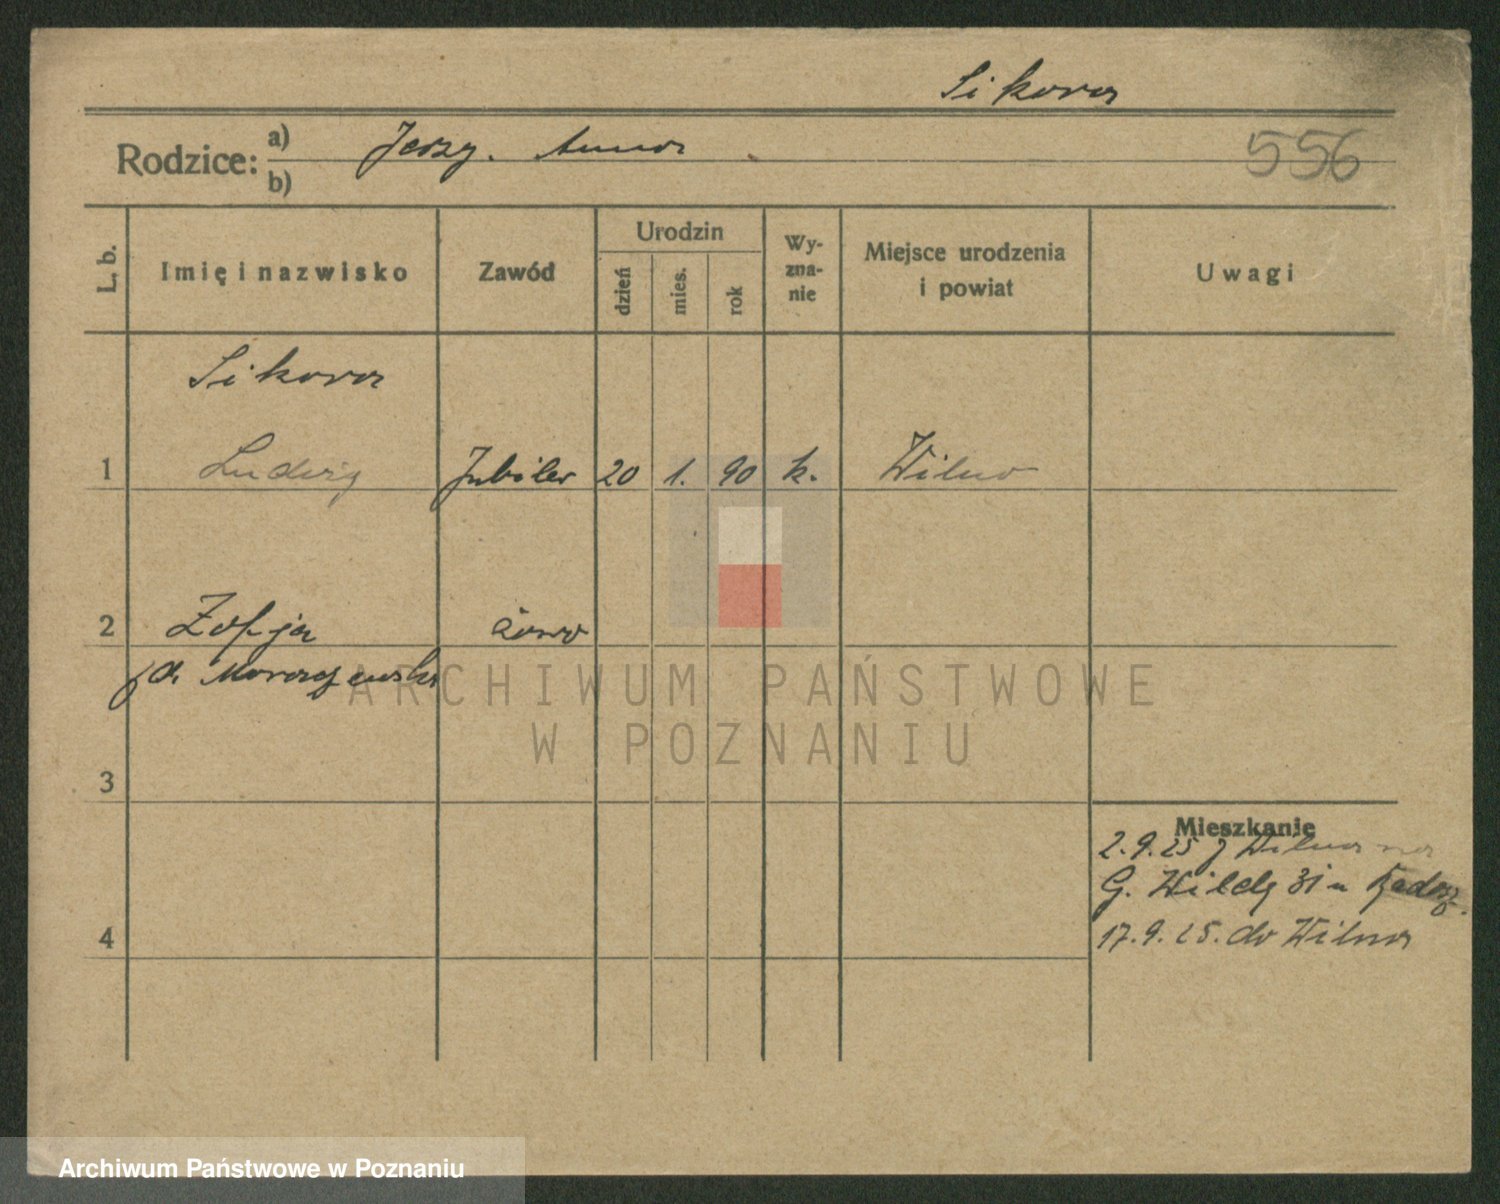 Sikora
Rodzice: a) Jerzy. Anna
b)
556
L. b.
Imię i nazwisko
Zawód
Urodzin
dzień
mies.
rok
Wy-
zna-
nie
Miejsce urodzenia
i powiat
Uwagi
Sikora
1 Ludwig Jubiler 20 1. 90 k. Wilno
2 Zofja żona
3
Mieszkanie
2.9.25 z Wilna na
G. Wildę 31 u
4
17.9.25. do Wilna
ARCHIWUM PAŃSTWOWE
W POZNANIU
Archiwum Państwowe w Poznaniu